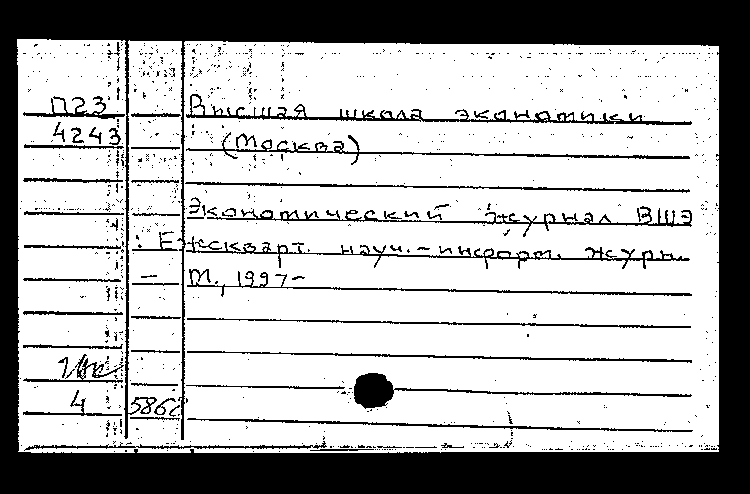 П23
4243
Высшая школа экономики
(Москва)
Экономический журнал ВШЭ
: Ежекварт. науч.-информ. журн.
— М., 1997-
4 5862